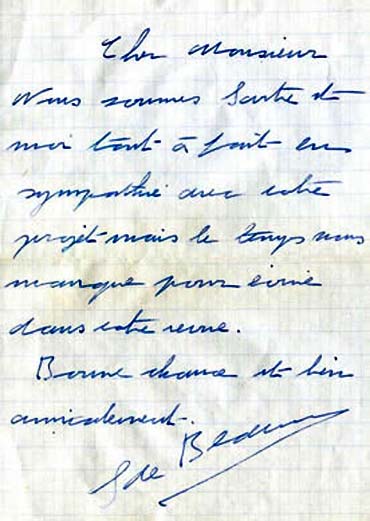 Cher Monsieur
Nous sommes Sartre et
moi tout à fait en
sympathie avec votre
projet mais le temps nous
manque pour écrire
dans votre revue.
Bonne chance et bien
amicalement.
S de Beauvoir